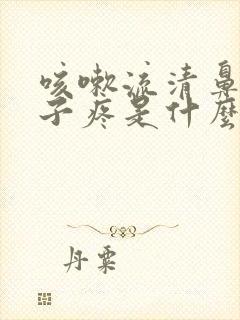 咳嗽流清鼻
子疼是什麼
丹粟